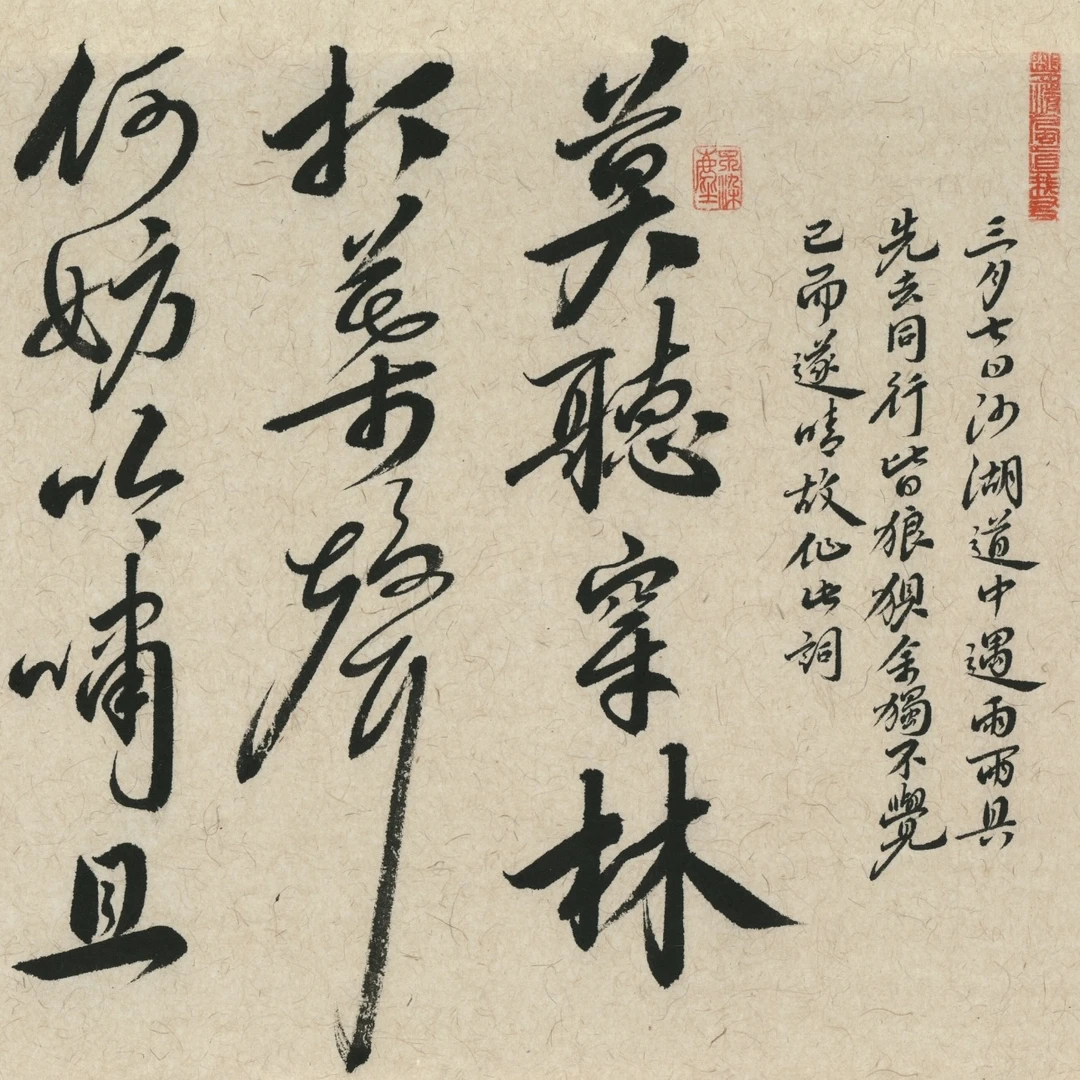 三月七日沙湖道中遇雨雨具
先去同行皆狼狽余獨不覺
已而遂晴故作此詞
莫聽穿林
打葉聲
何妨吟嘯且